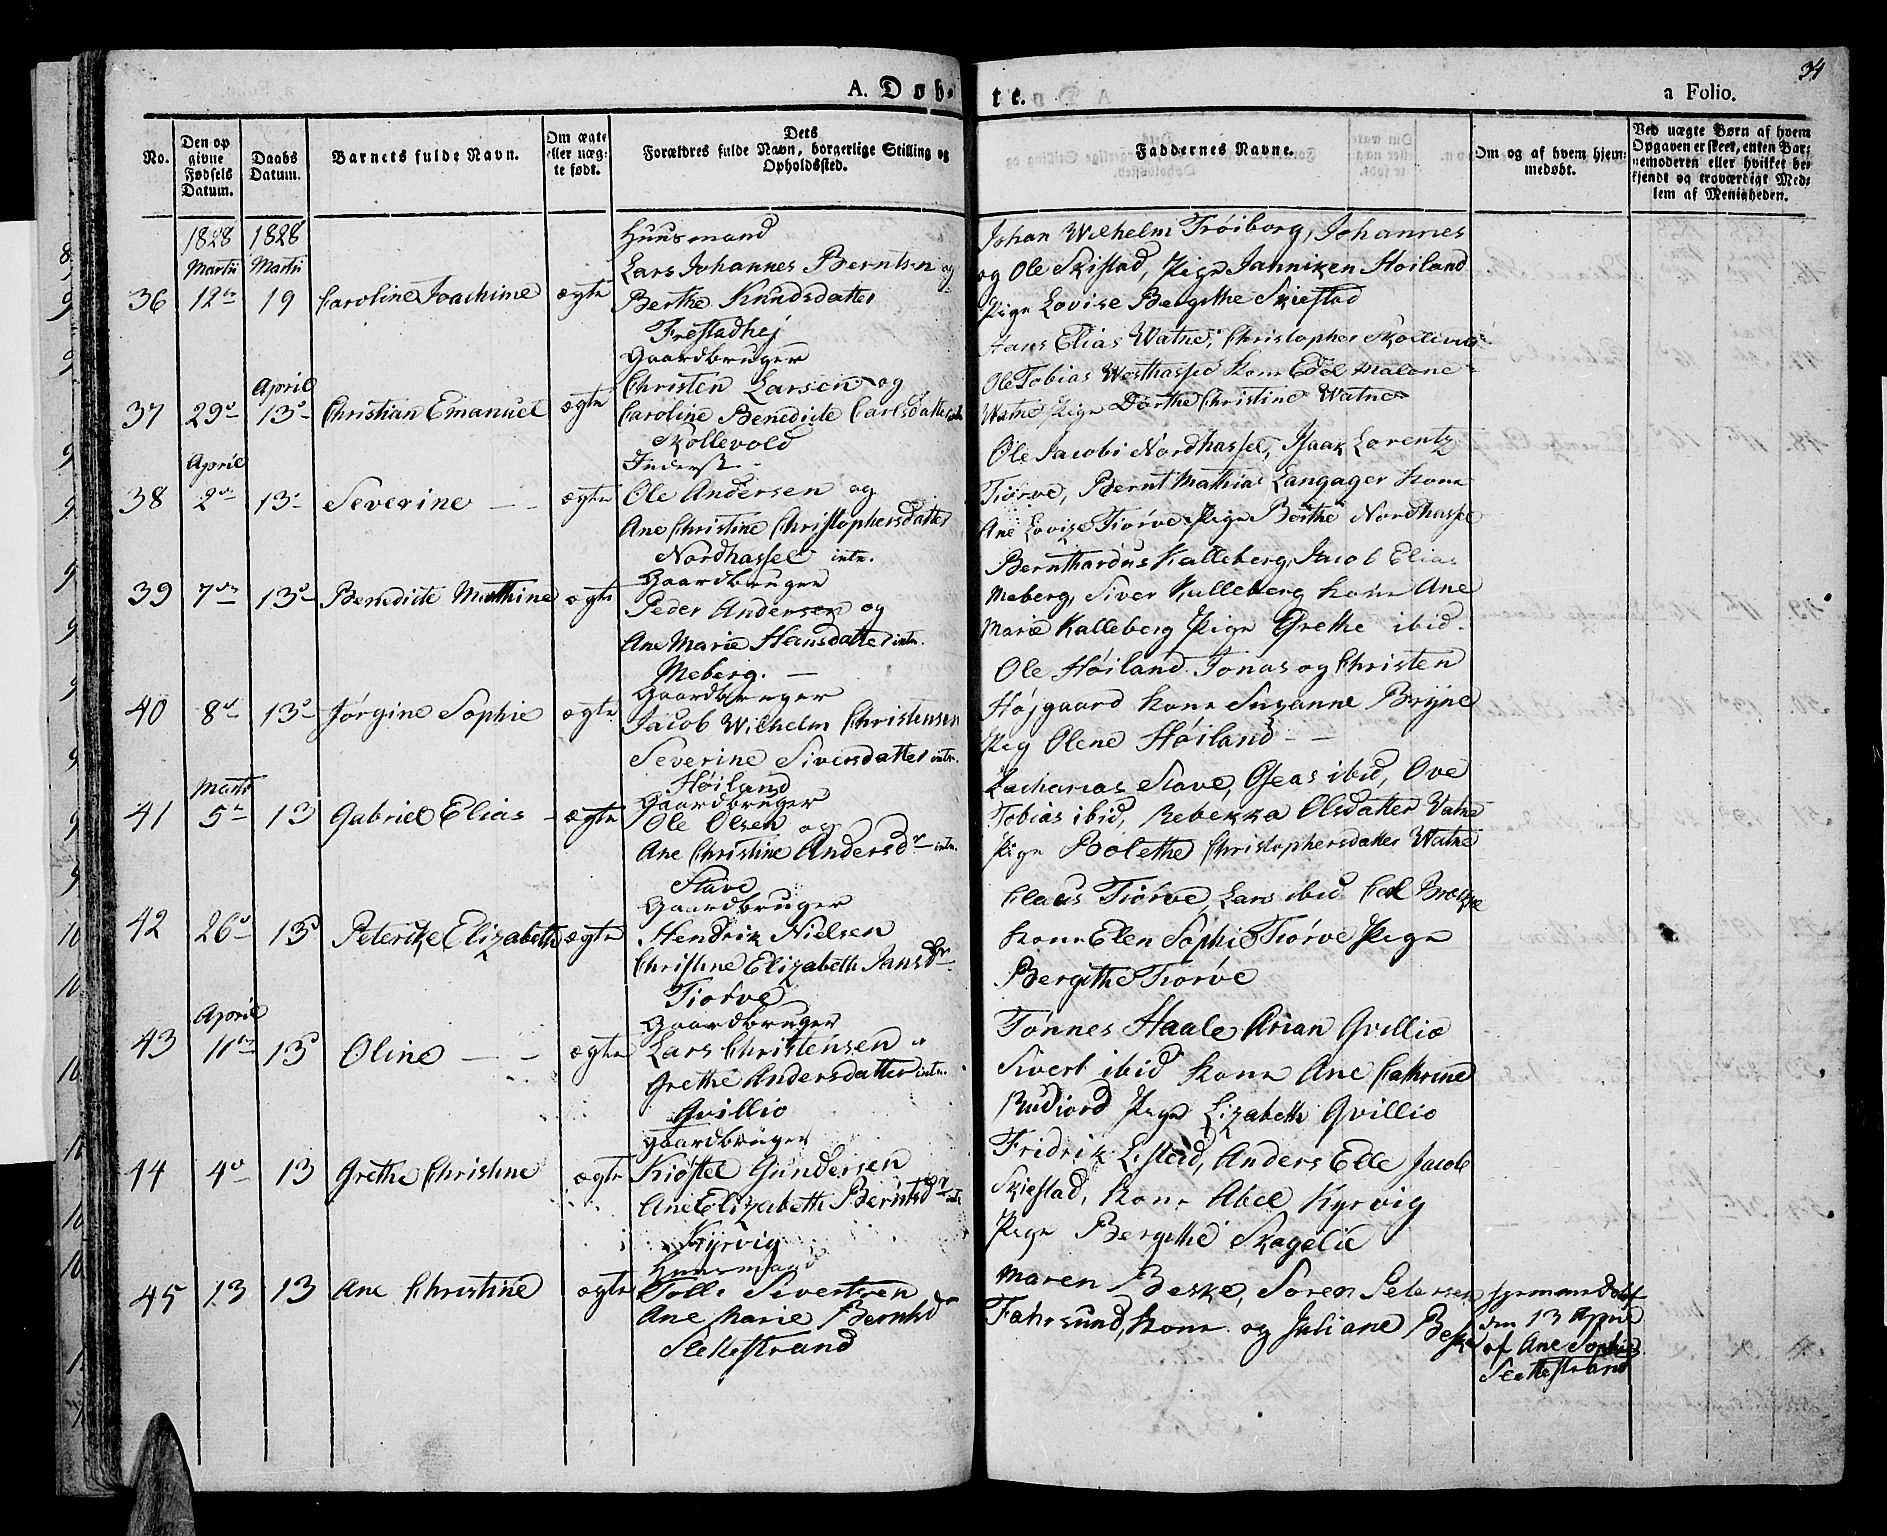 A. Døb-
te.
a Folio.
34
No.
Den op
givne
Fødsels
Datum.
Daabs
Datum.
Barnets fulde Navn.
Om ægte
eller uæg-
te født.
Dets
Forældres fulde Navn, borgerlige Stilling og
Opholdssted.
Faddernes Navne.
Om og af hvem hjem-
medøbt.
Ved uægte Børn af hvem
Opgaven er skeet, enten Bar-
nemoderen eller hvilket be-
kjendt og troværdigt Med-
lem af Menigheden.
1828 1828
Martii Martii
36 12te 19 Caroline Joachime ægte
Huusmand
Lars Johannes Berntsen og
Berthe Knudsdatter
Frestadhej
Johan Wilhelm Trøiborg, Johannes
og Ole Skistad, Pige Janniken Høiland
Pige Lovise Bergithe Skiestad
April
37 29d 13d Christian Emanuel ægte
Gaardbruger
Christen Larsen og
Caroline Benedicte Carlsdatter
Skollevold
Hans Elias Watne, Christopher Skollevold
Ole Tobias Westhassel Kone Edel Malene
Watne Pige Dorthe Christine Watne
April
38 2d 13d Severine ægte
Inderst
Ole Andersen og
Ane Christine Christophersdatter
Nordhassel intr.
Ole Jacobi Nordhassel, Isaak Lorentz
Tiørve, Bernt Mathias Langager Kone
Ane Lovise Tiørve Pige Berthe Nordhassel
39 7de 13d Benedicte Mathine ægte
Gaardbruger
Peder Andersen og
Ane Marie Hansdatter intr.
Meberg.
Bernthardus Kalleberg, Jacob Elias
Meberg, Siver Kalleberg Kone Ane
Marie Kalleberg Pige Grethe ibid.
40 8d 13d Jørgine Sophie ægte
Gaardbruger
Jacob Wilhelm Christensen
Severine Siversdatter intr.
Høiland
Ole Høiland Tonas og Christen
Højgaard Kone Suzanne Bryne
Pig Olene Høiland
Martii
41 5te 13 Gabriel Elias ægte
Gaardbruger
Ole Olsen og
Ane Christine Andersdr intr.
Stave
Zacharias Stave, Oseas ibid, Ove
Tobias ibid, Rebekka Olsdatter Vatne
Pige Bolethe Christophersdatter Watne
42 26d 13d Petericke Elizabeth ægte
Gaardbruger
Hendrik Nielsen
Christine Elizabeth Jansdr
Tiørve
Claus Tiørve, Lars ibid Carl Brekke
Kone Elen Sophie Tiørve Pige
Bergithe Tiørve
April
43 11te 13d Oline ægte
Gaardbruger
Lars Christensen
Grethe Andersdatter intr.
Qvillio
Tønnes Haale Arian Qvillio
Sivert ibid Kone Ane Cathrine
Rudiord Pige Lizabeth Qvillio
44 4d 13 Grethe Christine ægte
Gaardbruger
Kiøstel Gundersen
Ane Elizabeth Berntsdr intr.
Kyrvig
Fridrik Lestad, Anders Elle Jacob
Skiestad, Kone Abel Kyrvig
Pige Bergithe Skagelie
45 13 13 Ane Christine ægte
Huusmand
Tolle Sivertsen
Ane Marie Berntsd
Slettestrand
Maren Beske, Søren Petersen
Fahrsund, Kone og Juliane Beske
hjemmedøbt
den 13 April
af Ane Sophie
Slettestrand